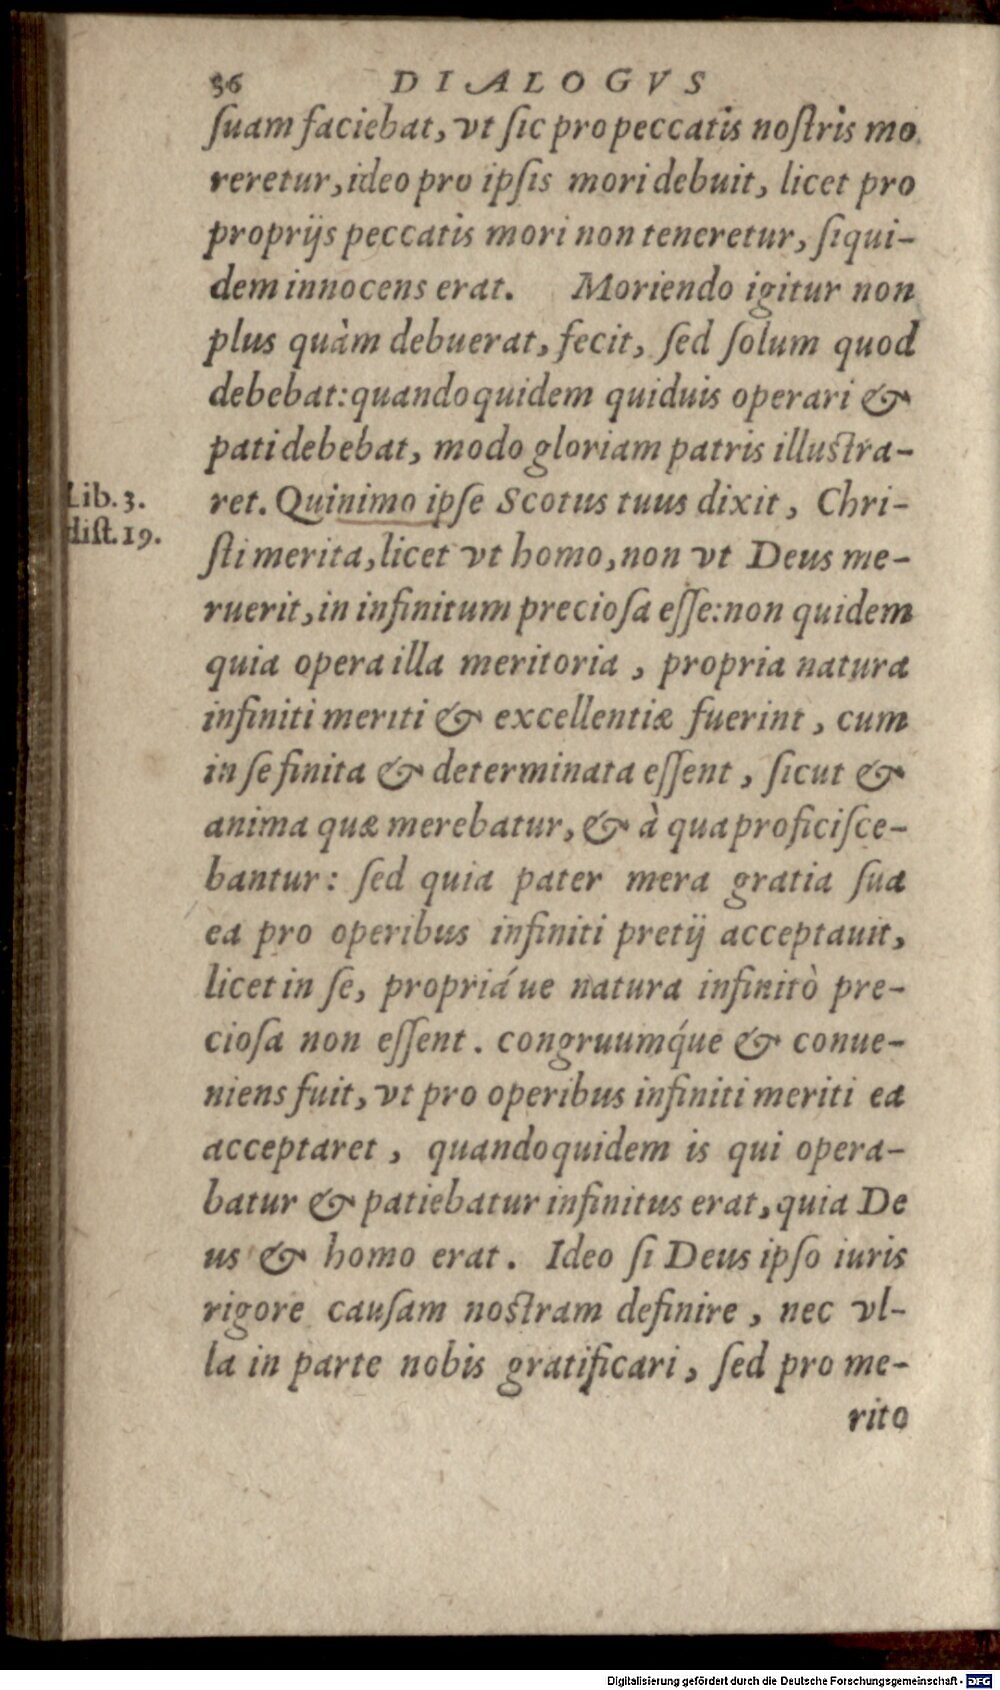 56 DIALOGVS
ſuam faciebat, vt ſic pro peccatis noſtris mo
reretur, ideo pro ipſis mori debuit, licet pro
proprijs peccatis mori non teneretur, ſiqui-
dem innocens erat. Moriendo igitur non
plus quàm debuerat, fecit, ſed ſolum quod
debebat: quandoquidem quiduis operari &
pati debebat, modo gloriam patris illuſtra-
Lib. 3.
ret. Quinimo ipſe Scotus tuus dixit, Chri-
diſt. 19.
ſti merita, licet vt homo, non vt Deus me-
ruerit, in infinitum precioſa eſſe: non quidem
quia opera illa meritoria, propria natura
infiniti meriti & excellentiæ fuerint, cum
in ſe finita & determinata eſſent, ſicut &
anima quæ merebatur, & à qua proficiſce-
bantur: ſed quia pater mera gratia ſua
ea pro operibus infiniti pretij acceptauit,
licet in ſe, propriáue natura infinitò pre-
cioſa non eſſent. congruumq́ue & conue-
niens fuit, vt pro operibus infiniti meriti ea
acceptaret, quandoquidem is qui opera-
batur & patiebatur infinitus erat, quia De
us & homo erat. Ideo ſi Deus ipſo iuris
rigore cauſam noſtram definire, nec vl-
la in parte nobis gratificari, ſed pro me-
rito
Digitalisierung gefördert durch die Deutsche Forschungsgemeinschaft - DFG